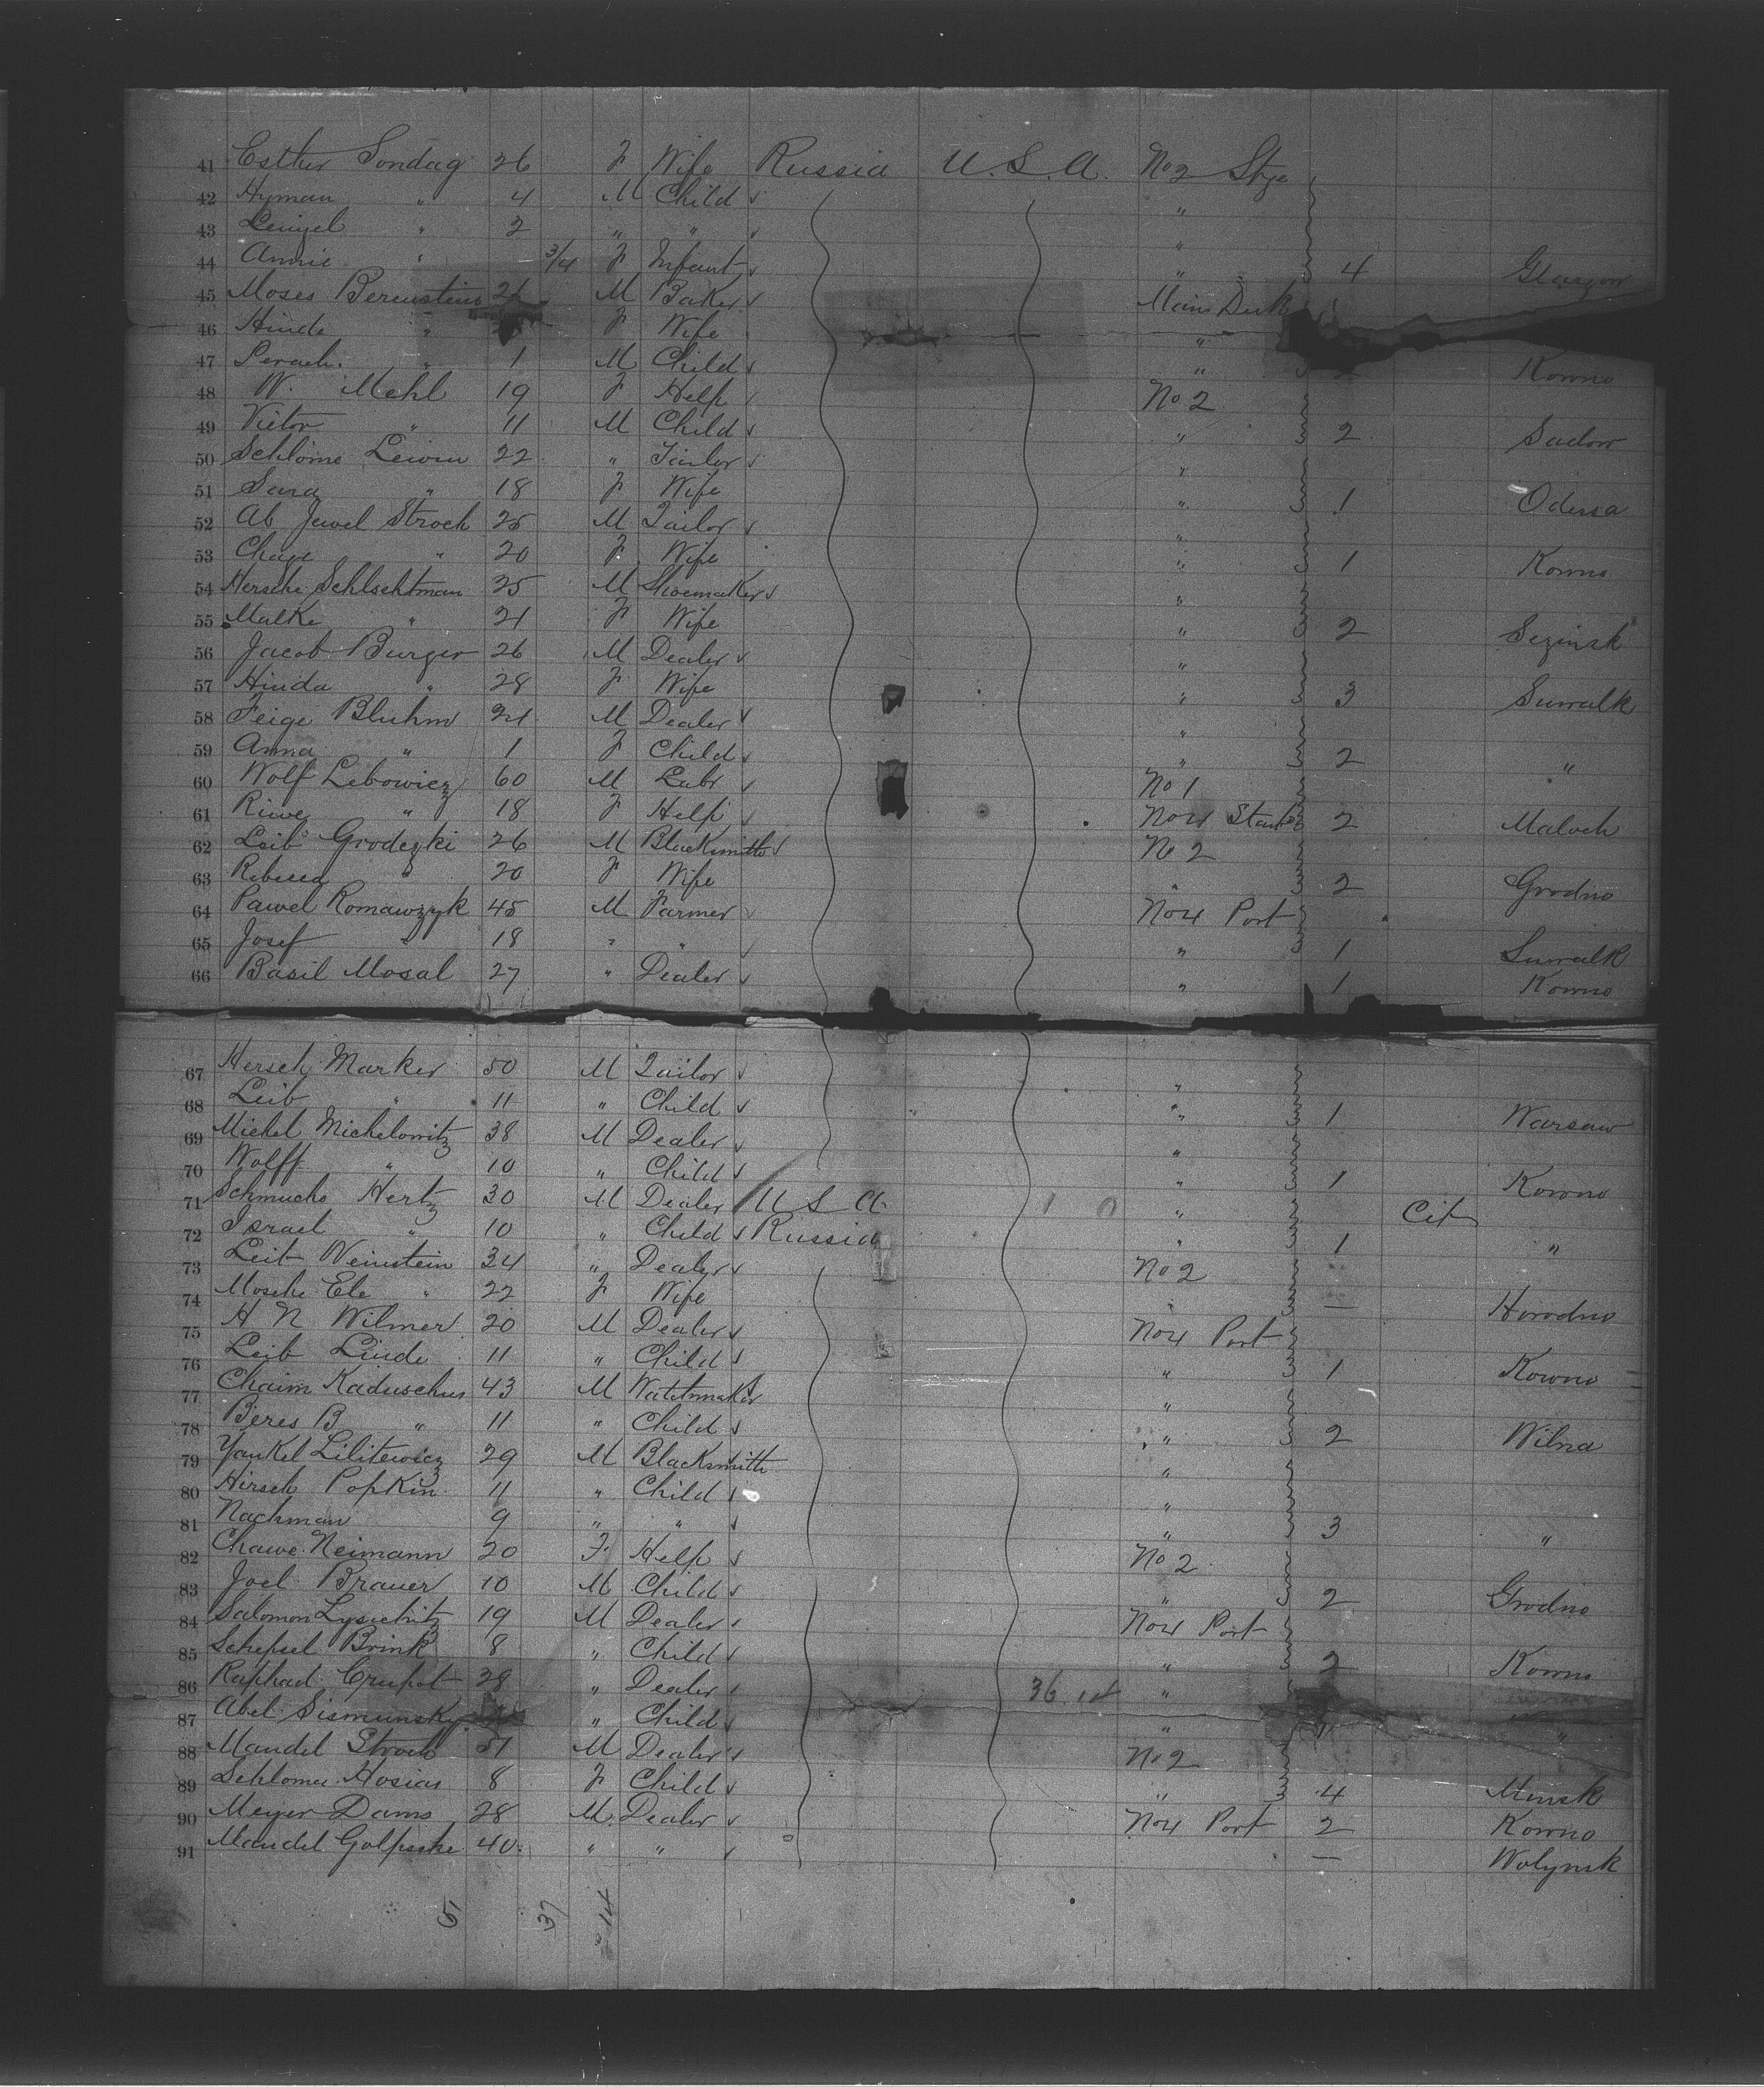 41 Esther Sondag 26 F Wife Russia U.S.A. No 2 Stge
42 Hyman " 4 M Child "
43 " 2 " " " "
44 Annie " 3/4 F Infant " 4 Glasgow
45 Moses Berenstein M Baker Main Deck
46 Hinde " F Wife "
47 Perach. " 1 M Child " Kowno
48 W. Mehl 19 F Help No 2
49 Victor " 11 M Child " 2 Sadow
50 Schlome Lewin 22 " Tailor "
51 Sara " 18 F Wife " 1 Odessa
52 Ab Jewel Stroch 25 M Tailor "
53 Chaye " 20 F Wife " 1 Kowno
54 Hersche Schlschtman 25 M Shoemaker "
55 Malke " 21 F Wife " 2 Sezinsk
56 Jacob Burger 26 M Dealer "
57 Hinda " 28 F Wife " 3 Suwalk
58 Feige Bluhm 21 M Dealer "
59 Anna " 1 F Child " 2 "
60 Wolf Lebowicz 60 M Labr No 1
61 Riwe " 18 F Help No 4 2 Maloch
62 Leib Grodezki 26 M Blacksmith No 2
63 Rebecca " 20 F Wife " 2 Grodno
64 Pawel Romawzyk 45 M Farmer No 4 Port
65 Josef " 18 " " " 1 Suwalk
66 Basil Mosal 27 " Dealer " 1 Kowno
67 Hersch Marker 50 M Tailor "
68 Leib " 11 " Child " 1 Warsaw
69 Michel Michelowitz 38 M Dealer "
70 Wolff " 10 " Child " 1 Kowno
71 Schmucho Hertz 30 M Dealer U S A 1 0 " Cit
72 Israel " 10 " Child Russia " 1 "
73 Leib Weinstein 34 " Dealer No 2
74 Mosche Ele " 22 F Wife " — Horodno
75 H N Wilmer 20 M Dealer No 4 Port
76 Leib Linde 11 " Child " 1 Kowno
77 Chaim Kaduschus 43 M Watchmaker "
78 Beres B " 11 " Child " 2 Wilna
79 Yankel Lilitewicz 29 M Blacksmith "
80 Hirsch Popkin 11 " Child "
81 Nachman 9 " " " 3 "
82 Chawe Neimann 20 F Help No 2
83 Joel Brauer 10 M Child " 2 Grodno
84 Salomon 19 M Dealer No 4 Port
85 Schepsel Brink 8 " Child " 2 Kowno
86 Raphael 28 " Dealer 36.14 "
87 Abel Sismunsky " Child " "
88 Mandel Stroch 51 M Dealer No 2
89 Schlome Hosias 8 F Child " 4 Minsk
90 Meyer Dams 28 M Dealer No 4 Port 2 Kowno
91 Mandel Golpsche 40 " " — Wolynsk
51 37 14